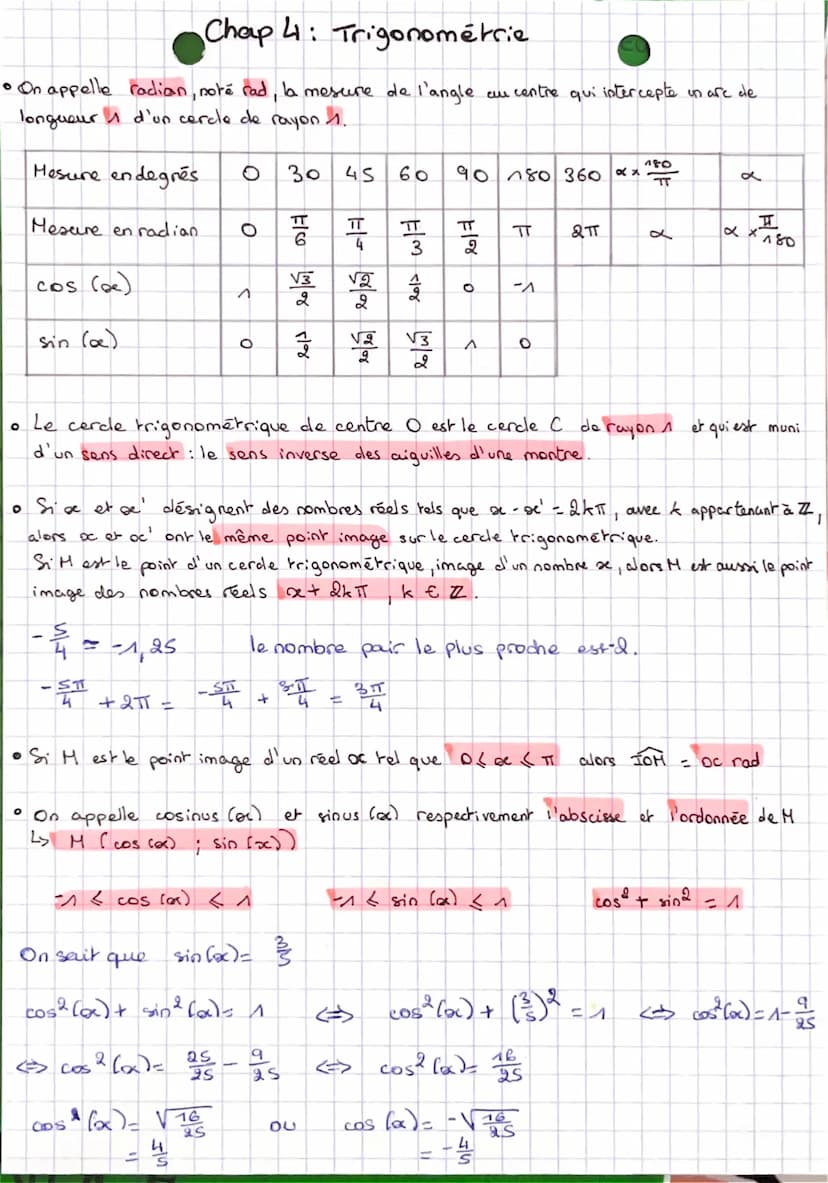 Chap 4 : Trigonométrie
• On appelle radian, noté rad, la mesure de l'angle au centre qui intercepte un arc de
longueur 1 d'un cercle de rayon 1.
Mesure en degrés 0 30 45 60 90 180 360 α × 180/π α
Mesure en radian 0 π/6 π/4 π/3 π/2 π 2π α α × π/180
cos (x) 1 √3/2 √2/2 1/2 0 -1
sin (x) 0 1/2 √2/2 √3/2 1 0
• Le cercle trigonométrique de centre O est le cercle C de rayon 1 et qui est muni
d'un sens direct : le sens inverse des aiguilles d'une montre.
• Si x et x' désignent des nombres réels tels que x - x' = 2kπ, avec k appartenant à ℤ,
alors x et x' ont le même point image sur le cercle trigonométrique.
Si M est le point d'un cercle trigonométrique, image d'un nombre x, alors M est aussi le point
image des nombres réels x + 2kπ, k ∈ ℤ.
-5/4 = -1,25 le nombre pair le plus proche est -2.
-5π/4 + 2π = -5π/4 + 8π/4 = 3π/4
• Si M est le point image d'un réel x tel que 0 ≤ x ≤ π alors IOM = x rad
• On appelle cosinus (x) et sinus (x) respectivement l'abscisse et l'ordonnée de M
↳ M (cos (x) ; sin (x))
-1 ≤ cos (x) ≤ 1 -1 ≤ sin (x) ≤ 1 cos² + sin² = 1
On sait que sin(x) = 3/5
cos²(x) + sin²(x) = 1 ⟺ cos²(x) + (3/5)² = 1 ⟺ cos²(x) = 1 - 9/25
⟺ cos²(x) = 25/25 - 9/25 ⟺ cos²(x) = 16/25
cos (x) = √16/25 ou cos (x) = -√16/25
= 4/5 = -4/5